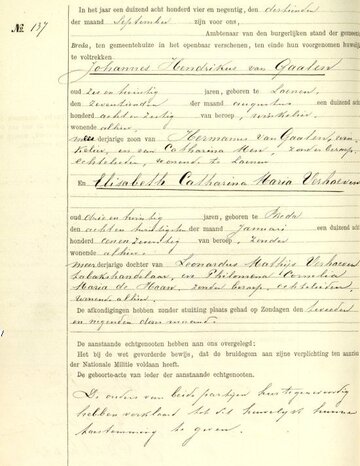 In het jaar een duizend acht honderd vier en negentig, den dertienden
der maand September zijn voor ons,
№ 137
Ambtenaar van den burgerlijken stand der gemeente
Breda, ten gemeentehuize in het openbaar verschenen, ten einde hun voorgenomen huwelijk
te voltrekken.
Johannes Hendrikus van Gaalen
oud zes en twintig jaren, geboren te Laenen,
den zeventienden der maand augustus een duizend acht
honderd acht en zestig van beroep, winkelier,
wonende alhier,
meerderjarige zoon van Hermanus van Gaalen, win-
kelier, en van Catharina zonder beroep,
echtelieden, wonende te Laenen
En Elisabeth Catharina Maria Verhoeven
oud drie en twintig jaren, geboren te Breda
den acht en twintigsten der maand januari een duizend acht
honderd een en zeventig van beroep, zonder
wonende alhier,
meerderjarige dochter van Leonardus Mathijs Verhoeven
tabakshandelaar, en Philomena Cornelia
Maria de Haas, zonder beroep, echtelieden,
wonende alhier.
De afkondigingen hebben zonder stuiting plaats gehad op Zondagen den tweeden
en negenden dezer maand.
De aanstaande echtgenooten hebben aan ons overgelegd:
Het bij de wet gevorderde bewijs, dat de bruidegom aan zijne verplichting ten aanzien
der Nationale Militie voldaan heeft.
De geboorte-acte van ieder der aanstaande echtgenooten.
De ouders van beide partijen hier tegenwoordig
hebben verklaard tot dit huwelijk hunne
toestemming te geven.